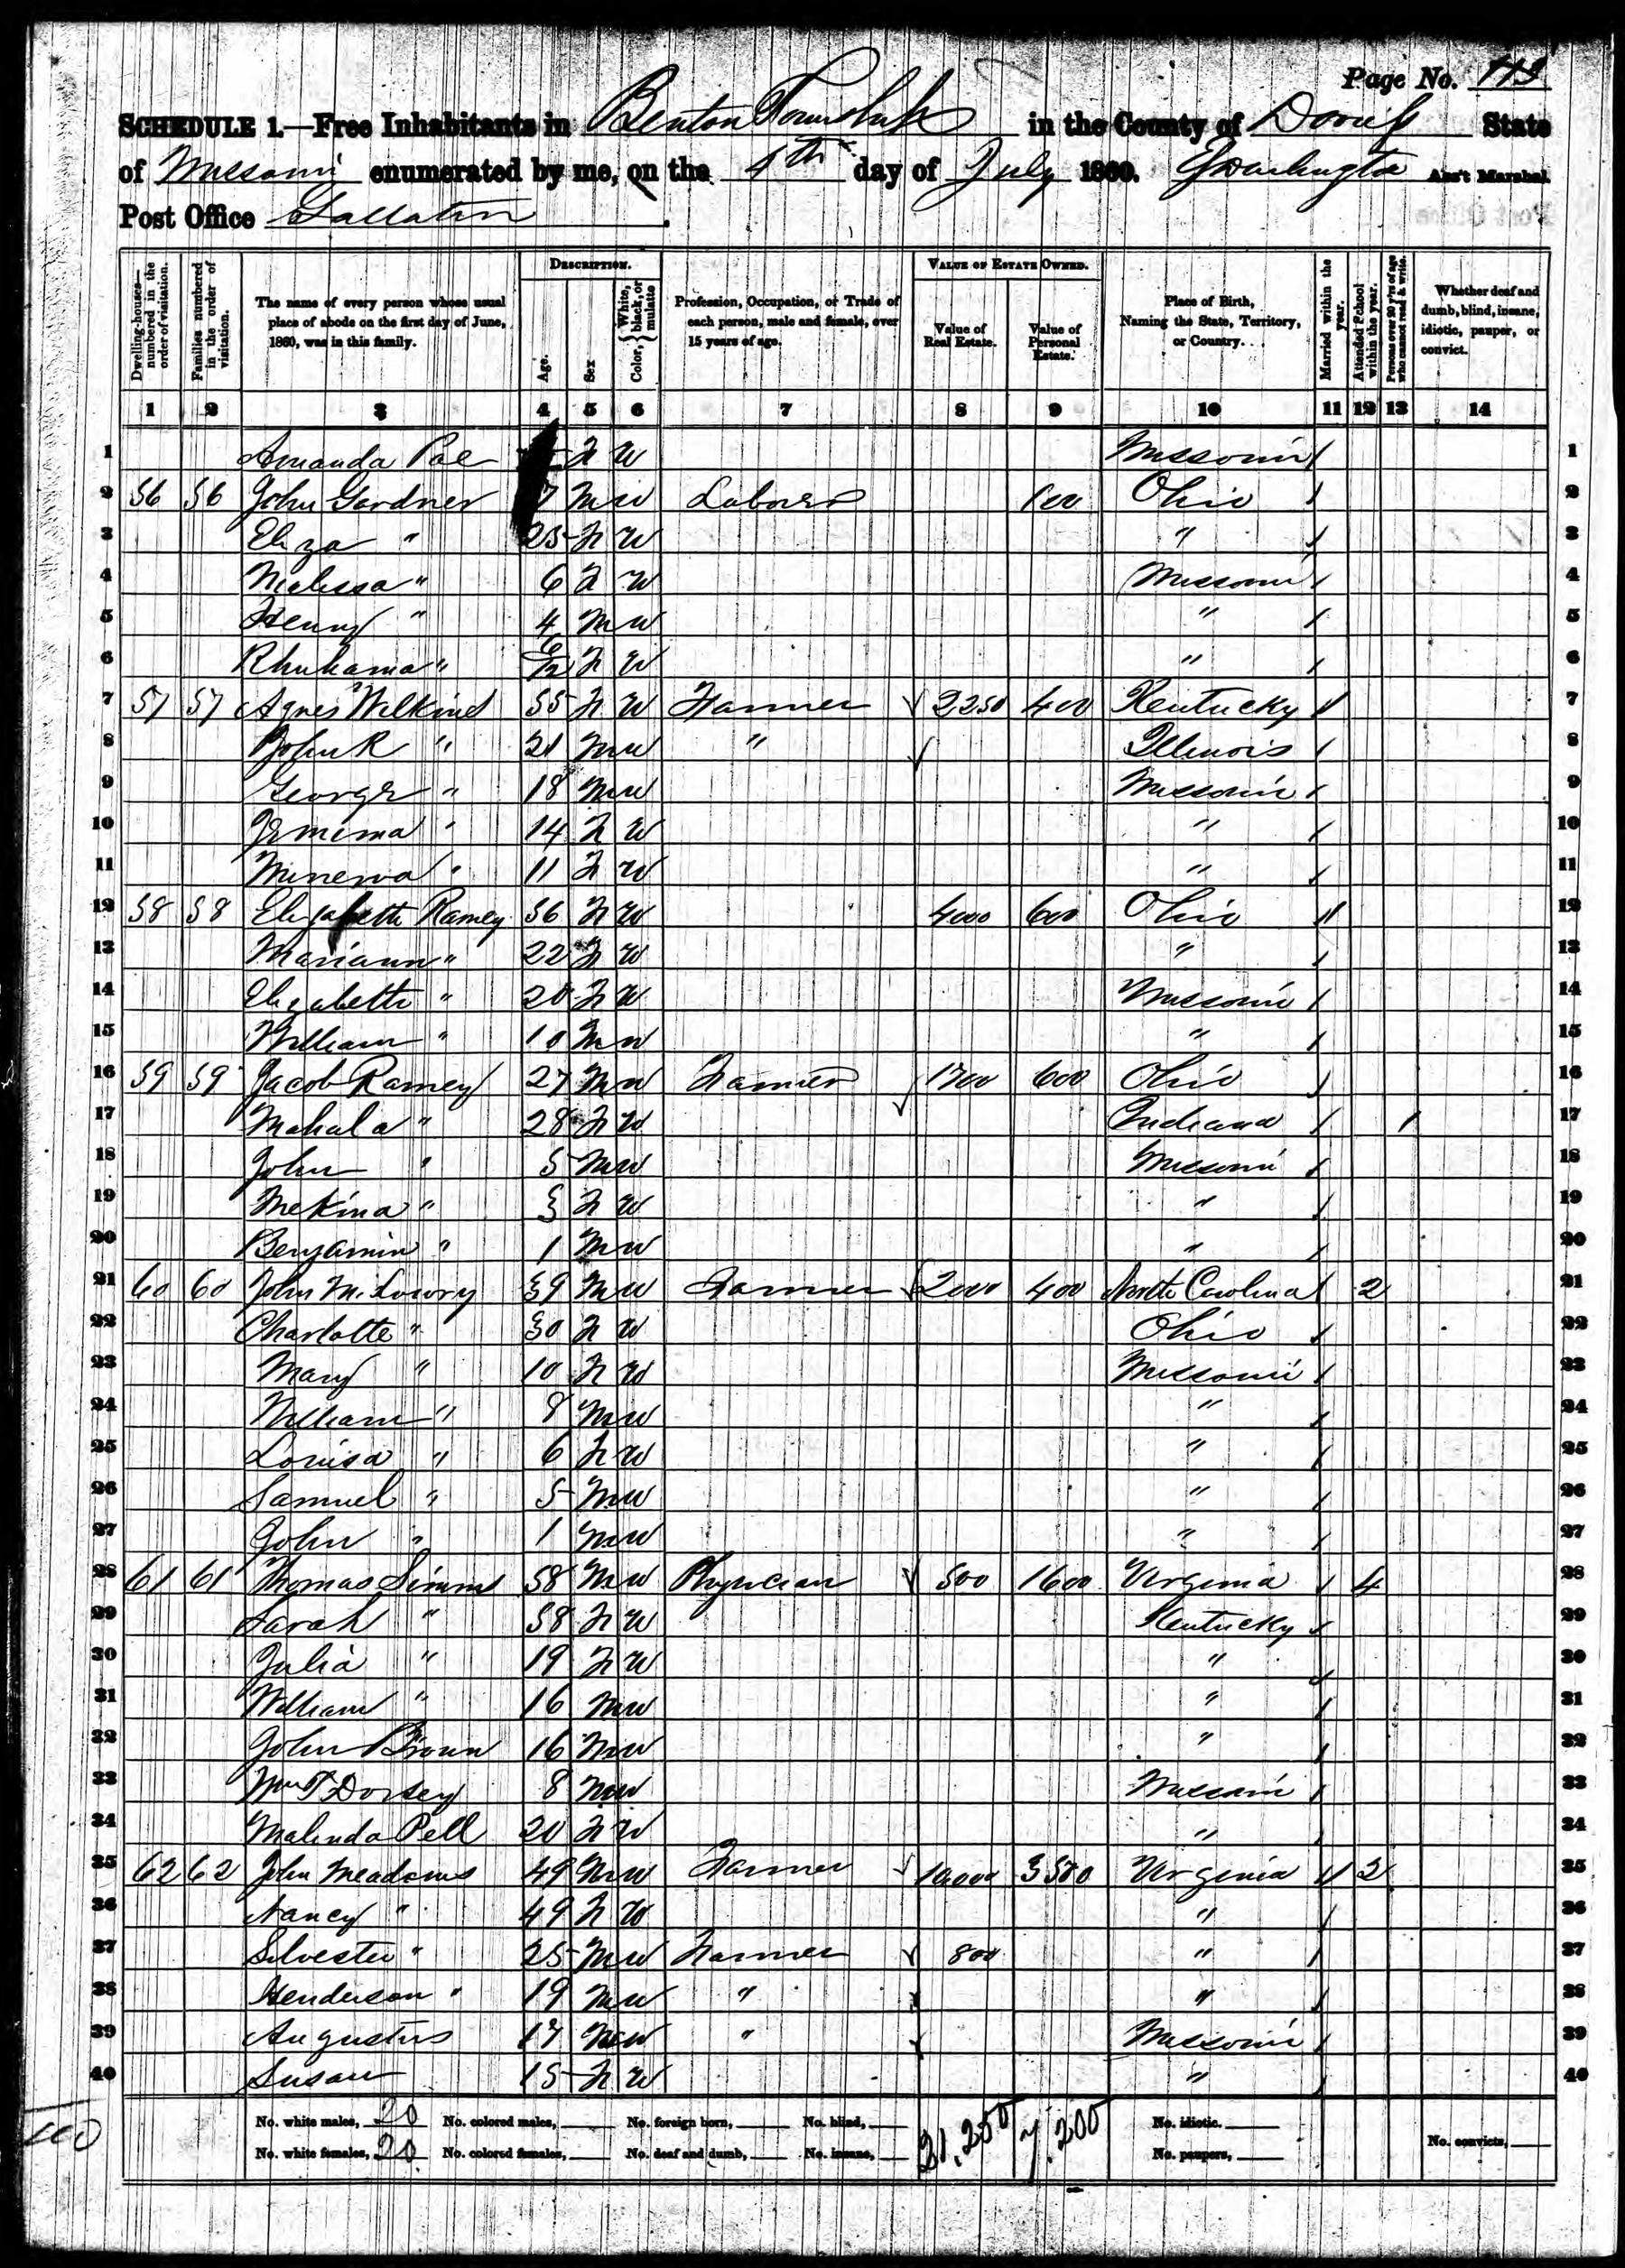 Page No. 113
SCHEDULE 1.—Free Inhabitants in Benton Township in the County of Daviess State
of Missouri enumerated by me, on the 4th day of July 1860. Ass't Marshal.
Post Office Gallatin.
Dwelling-houses—numbered in the order of visitation. Families numbered in the order of visitation. The name of every person whose usual place of abode on the first day of June, 1860, was in this family. DESCRIPTION. Age. Sex Color, White, black, or mulatto Profession, Occupation, or Trade of each person, male and female, over 15 years of age. VALUE OF ESTATE OWNED. Value of Real Estate. Value of Personal Estate. Place of Birth, Naming the State, Territory, or Country. Married within the year. Attended School within the year. Persons over 20 y'rs of age who cannot read & write. Whether deaf and dumb, blind, insane, idiotic, pauper, or convict.
1 2 3 4 5 6 7 8 9 10 11 12 13 14
1 Amanda Poe F W Missouri / 1
2 56 56 John Gardner M W Laborer 100 Ohio / 2
3 Eliza " 25 F W " / 3
4 Melissa " 6 F W Missouri / 4
5 Henry " 4 M W " / 5
6 Rhuhama " 6/12 F W " / 6
7 57 57 Agnes Wilkins 55 F W Farmer 2250 400 Kentucky // 7
8 John R " 21 M W " Illinois / 8
9 George " 18 M W Missouri / 9
10 Jemima " 14 F W " / 10
11 Minerva " 11 F W " / 11
12 58 58 Elizabeth Ramey 56 F W 4000 600 Ohio // 12
13 Mariann " 22 F W " / 13
14 Elizabeth " 20 F W Missouri / 14
15 William " 10 M W " / 15
16 59 59 Jacob Ramey 27 M W Farmer 1700 600 Ohio / 16
17 Mahala " 28 F W Indiana / / 17
18 John " 5 M W Missouri / 18
19 Mekina " 3 F W " / 19
20 Benjamin " 1 M W " / 20
21 60 60 John M. Lowry 39 M W Farmer 2000 400 North Carolina / 2 21
22 Charlotte " 30 F W Ohio / 22
23 Mary " 10 F W Missouri / 23
24 William " 8 M W " / 24
25 Louisa " 6 F W " / 25
26 Samuel " 5 M W " / 26
27 John " 1 M W " / 27
28 61 61 Thomas Simms 58 M W Physician 500 1600 Virginia / 4 28
29 Sarah " 58 F W Kentucky / 29
30 Julia " 19 F W " / 30
31 William " 16 M W " / 31
32 John Brown 16 M W " / 32
33 Wm T Dorsey 8 M W Missouri / 33
34 Malinda Pell 20 F W " / 34
35 62 62 John Meadows 49 M W Farmer 10000 3500 Virginia // 2 35
36 Nancy " 49 F W " / 36
37 Silvester " 25 M W Farmer 800 " / 37
38 Henderson " 19 M W " " / 38
39 Augustus 17 M W " Missouri / 39
40 Susan 15 F W " / 40
No. white males, 20 No. colored males, No. foreign born, No. blind, 21,250 7,200 No. idiotic.
No. white females, 20 No. colored females, No. deaf and dumb, No. insane, No. paupers, No. convicts,